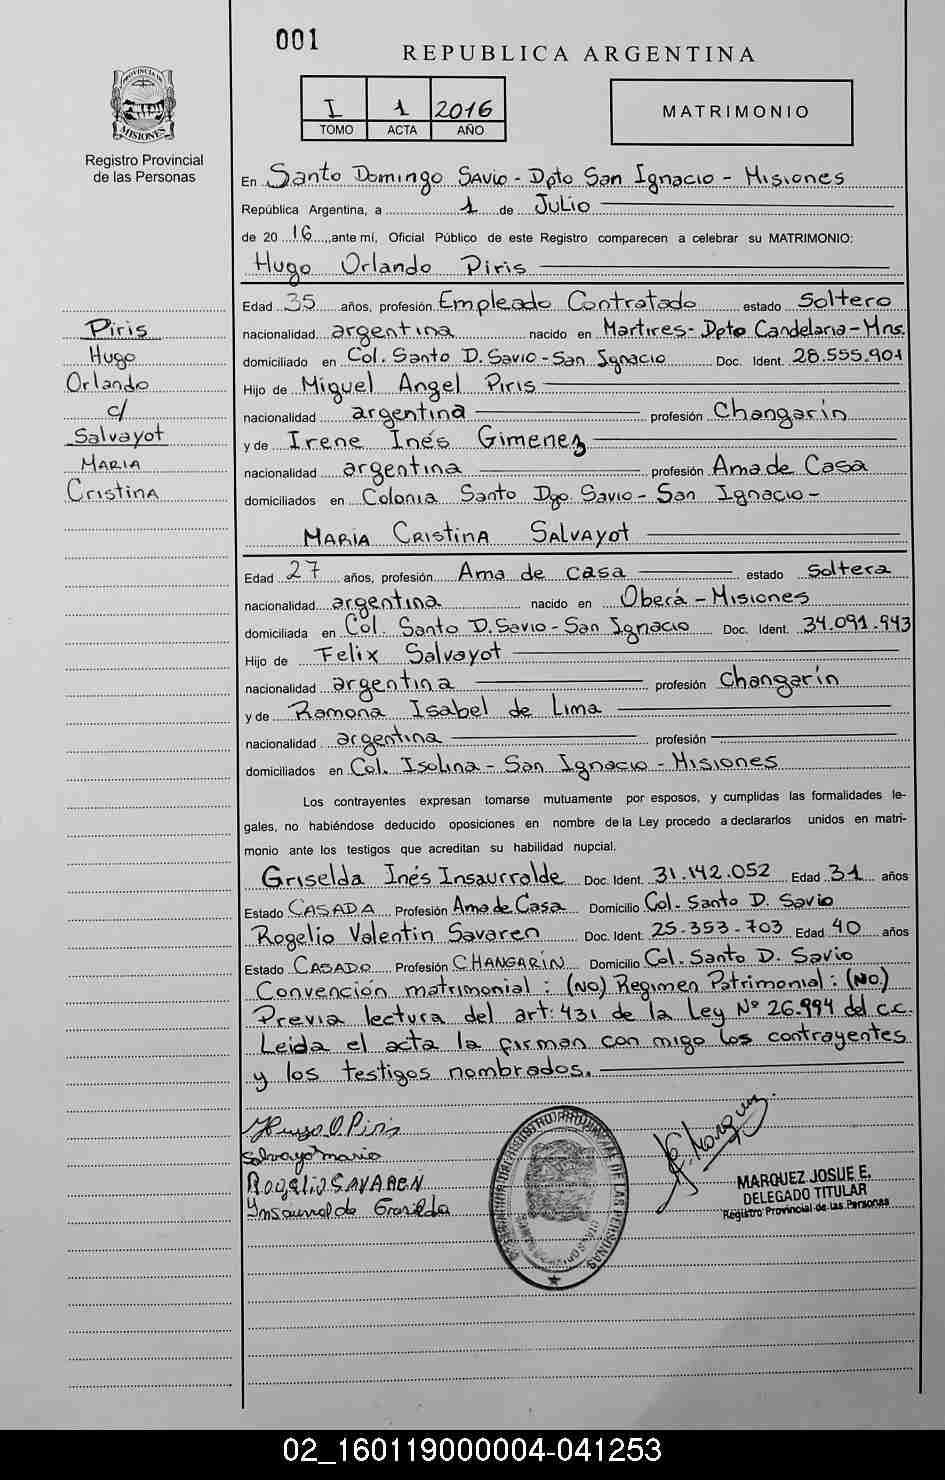 001
REPUBLICA ARGENTINA
PROVINCIA DE
MISIONES
Registro Provincial
de las Personas
I 1 2016
TOMO ACTA AÑO
MATRIMONIO
En Santo Domingo Savio - Dpto San Ignacio - Misiones
República Argentina, a 1 de Julio
de 20 16, ante mí, Oficial Público de este Registro comparecen a celebrar su MATRIMONIO:
Hugo Orlando Piris
Edad 35 años, profesión Empleado Contratado estado Soltero
nacionalidad argentina nacido en Martires - Dpto Candelaria - Mns.
domiciliado en Col. Santo D. Savio - San Ignacio Doc. Ident. 28.555.901
Hijo de Miguel Angel Piris
nacionalidad argentina profesión Changarín
y de Irene Inés Gimenez
nacionalidad argentina profesión Ama de Casa
domiciliados en Colonia Santo Dgo Savio - San Ignacio -
Piris
Hugo
Orlando
c/
Salvayot
MARIA
Cristina
MARIA CRistinA SALVAyot
Edad 27 años, profesión Ama de casa estado soltera
nacionalidad argentina nacido en Oberá - Misiones
domiciliada en Col. Santo D. Savio - San Ignacio Doc. Ident. 34.091.943
Hijo de Felix Salvayot
nacionalidad argentina profesión changarín
y de Ramona Isabel de Lima
nacionalidad argentina profesión
domiciliados en Col. Isolina - San Ignacio - Misiones
Los contrayentes expresan tomarse mutuamente por esposos, y cumplidas las formalidades le-
gales, no habiéndose deducido oposiciones en nombre de la Ley procedo a declararlos unidos en matri-
monio ante los testigos que acreditan su habilidad nupcial.
Griselda Inés Insaurralde Doc. Ident. 31.142.052 Edad 31 años
Estado CASADA Profesión Ama de Casa Domicilio Col. Santo D. Savio
Rogelio Valentin Savaren Doc. Ident. 25-353-703 Edad 40 años
Estado CASADO Profesión CHANGARÍN Domicilio Col. Santo D. Savio
Convención matrimonial: (NO) Regimen Patrimonial: (NO)
Previa lectura del art: 431 de la Ley Nº 26.994 del c.c.
Leida el acta la firman con migo los contrayentes
y los testigos nombrados.
Hugo O Piris
Salvayot maria
Rogelio SAVAREN
Ynsaurralde Griselda
Marquez
MARQUEZ JOSUE E.
DELEGADO TITULAR
Registro Provincial de las Personas
02_160119000004-041253